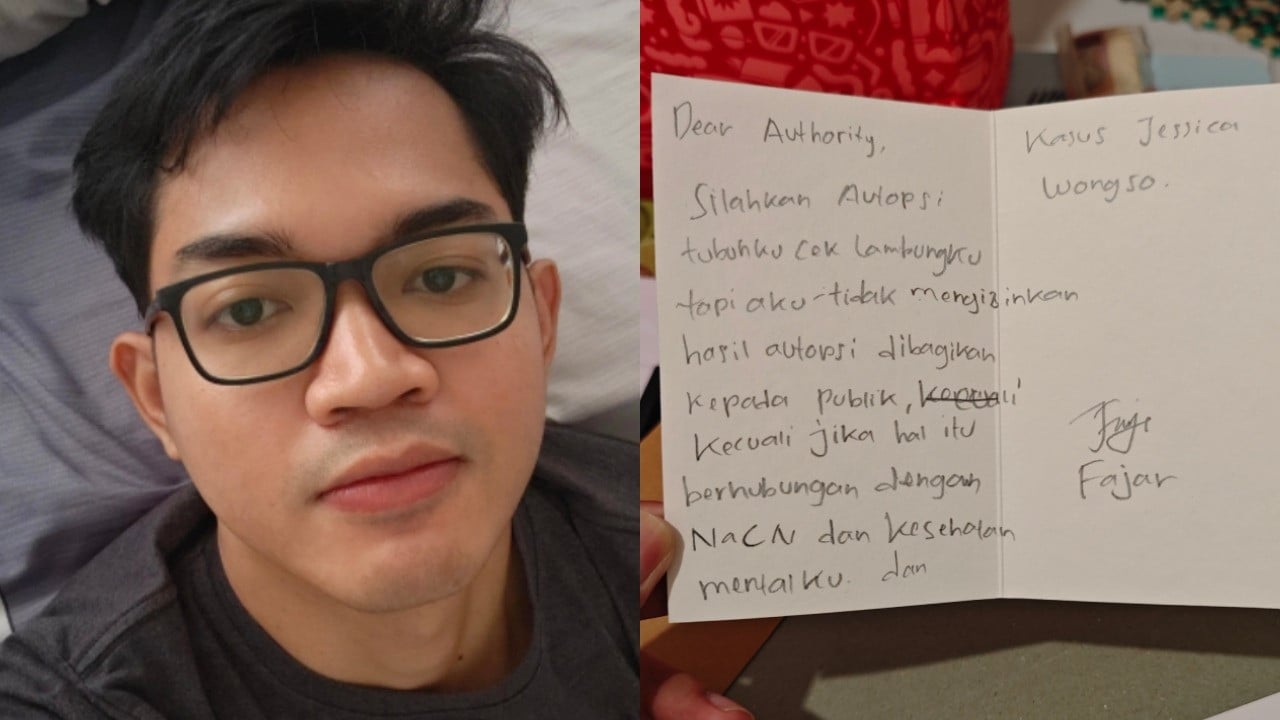 Dear Authority,
Silahkan Autopsi
tubuhku cek lambungku
tapi aku tidak mengizinkan
hasil autopsi dibagikan
kepada publik, kecuali
kecuali jika hal itu
berhubungan dengan
NaCN dan kesehatan
mentalku. dan
Kasus Jessica
Wongso.
Fajar